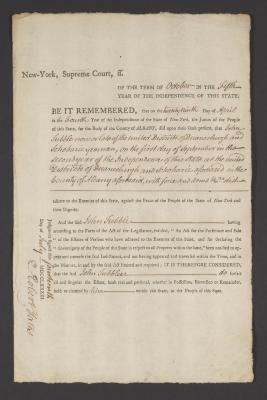 New-York, Supreme Court, ss.
OF THE TERM OF October IN THE Fifth
YEAR OF THE INDEPENDENCE OF THIS STATE.
BE IT REMEMBERED, that on the twenty ninth Day of April
in the fourth Year of the Independence of the State of New-York, the Jurors of the People
of this State, for the Body of the County of ALBANY, did upon their Oath present, that John
late of the united Districts of Duanesburgh and
Schoharie yeoman, on the first day of September in the
second year of the Independence of this State at the united
Districts of Duanesburgh and Schoharie aforesaid in the
County of Albany aforesaid, with force and arms &c did
adhere to the Enemies of this State, against the Peace of the People of the State of New-York and
their Dignity.
And the said John having
according to the Form of the Act of the Legislature, entitled, “An Act for the Forfeiture and Sale
“of the Estates of Persons who have adhered to the Enemies of this State, and for declaring the
“Sovereignty of the People of this State in respect to all Property within the same,” been notified to ap-
pear and traverse the said Indictment, and not having appeared and traversed within the Time, and in
the Manner, in and by the said Act limited and required; IT IS THEREFORE CONSIDERED,
that the said John do forfeit
all and singular the Estate, both real and personal, whether in Possession, Reversion or Remainder,
held or claimed by him within this State, to the People of this State.
Judgment signed
Day of July